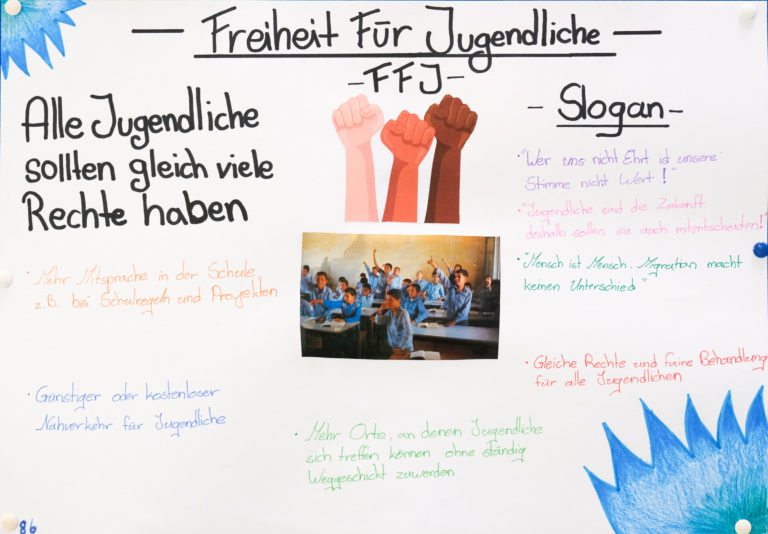 — Freiheit Für Jugendliche —
- FFJ -
Alle Jugendliche
sollten gleich viele
Rechte haben
• Mehr Mitsprache in der Schule,
z.B. bei Schulregeln und Projekten
• Günstiger oder kostenloser
Nahverkehr für Jugendliche
• Mehr Orte, an denen Jugendliche
sich treffen können ohne ständig
Weggeschickt zuwerden
- Slogan -
• "Wer uns nicht Ehrt ist unsere
Stimme nicht Wert!"
• "Jugendliche sind die Zukunft
deshalb sollen sie auch mitentscheiden!"
• "Mensch ist Mensch. Migration macht
keinen Unterschied"
• Gleiche Rechte und faire Behandlung
für alle Jugendlichen
86